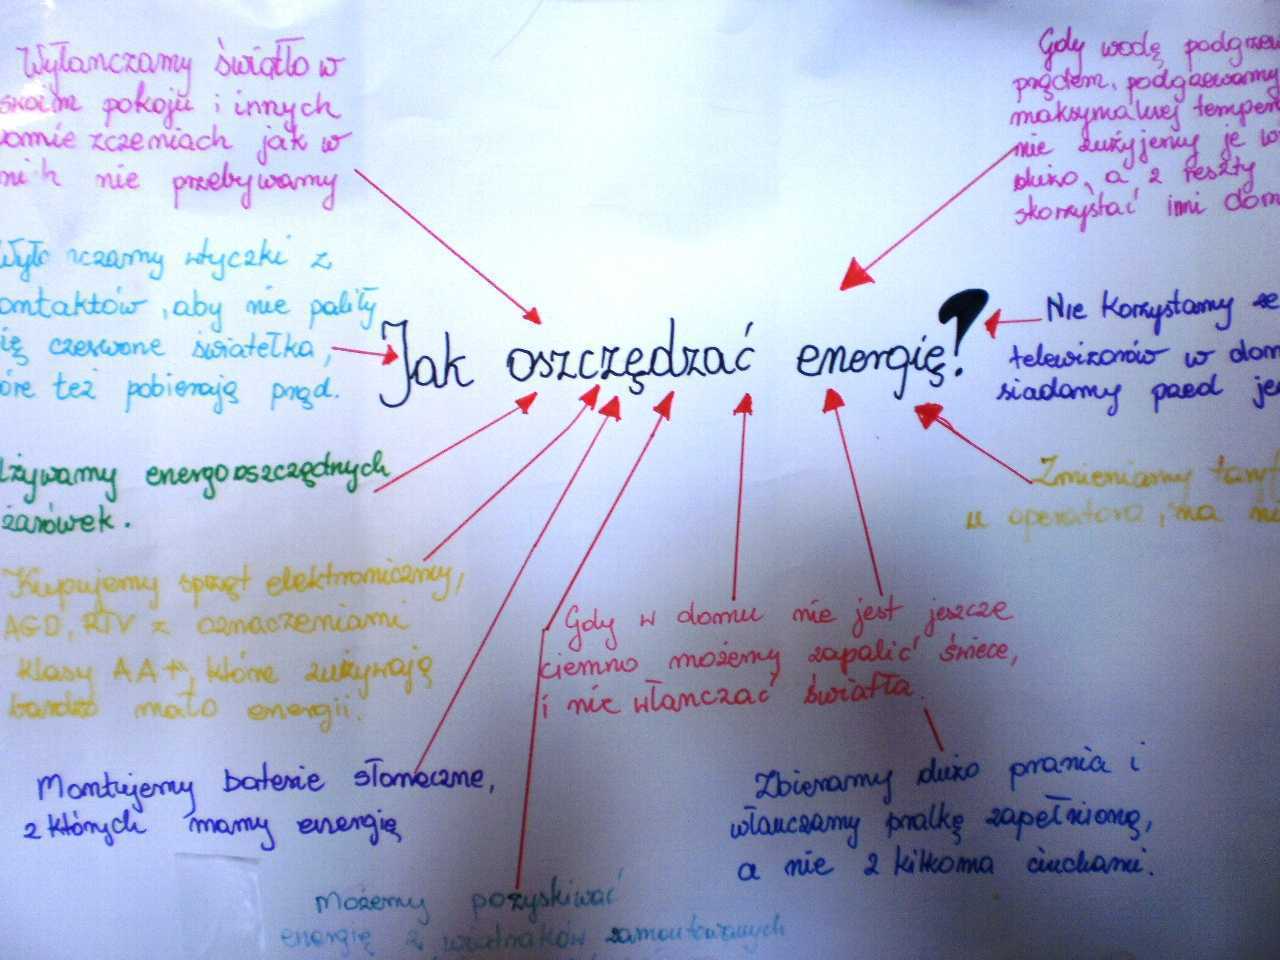 Wyłanczamy światło w
swoim pokoju i innych
pomieszczeniach jak w
nich nie przebywamy
Gdy wodę podgrzew
prądem, podgrzewamy
maksymalnej temper
nie zużyjemy je w
dużo, a z reszty
skorzystać inni dom
czamy wtyczki z
ontaktów, aby nie paliły
ię czerwone światełka,
óre też pobierają prąd.
Jak oszczędzać energię?
Nie korzystamy ze
telewizorów w dom
siadamy przed je
Używamy energooszczędnych
żarówek.
Zmieniamy taryf
u operatora, na ni
Kupujemy sprzęt elektroniczny,
AGD, RTV z oznaczeniami
klasy AA+, które zużywają
bardzo mało energii.
Gdy w domu nie jest jeszcze
ciemno możemy zapalić świece,
i nie włanczać światła.
Montujemy baterie słoneczne,
z których mamy energię
Zbieramy dużo prania i
włanczamy pralkę zapełnioną,
a nie z kilkoma ciuchami.
Możemy pozyskiwać
energię z wiatraków zamontowanych